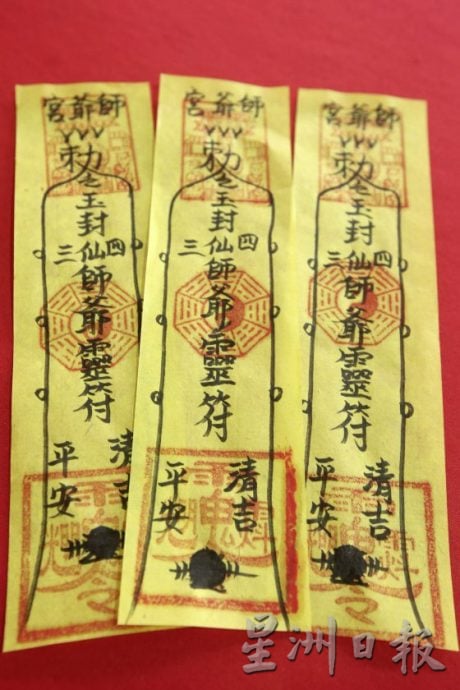 師爺宮
勅令玉封
四仙三
師爺靈符
清吉
平安
師爺宮
勅令玉封
四仙三
師爺靈符
清吉
平安
師爺宮
勅令玉封
四仙三
師爺靈符
清吉
平安
星洲日報